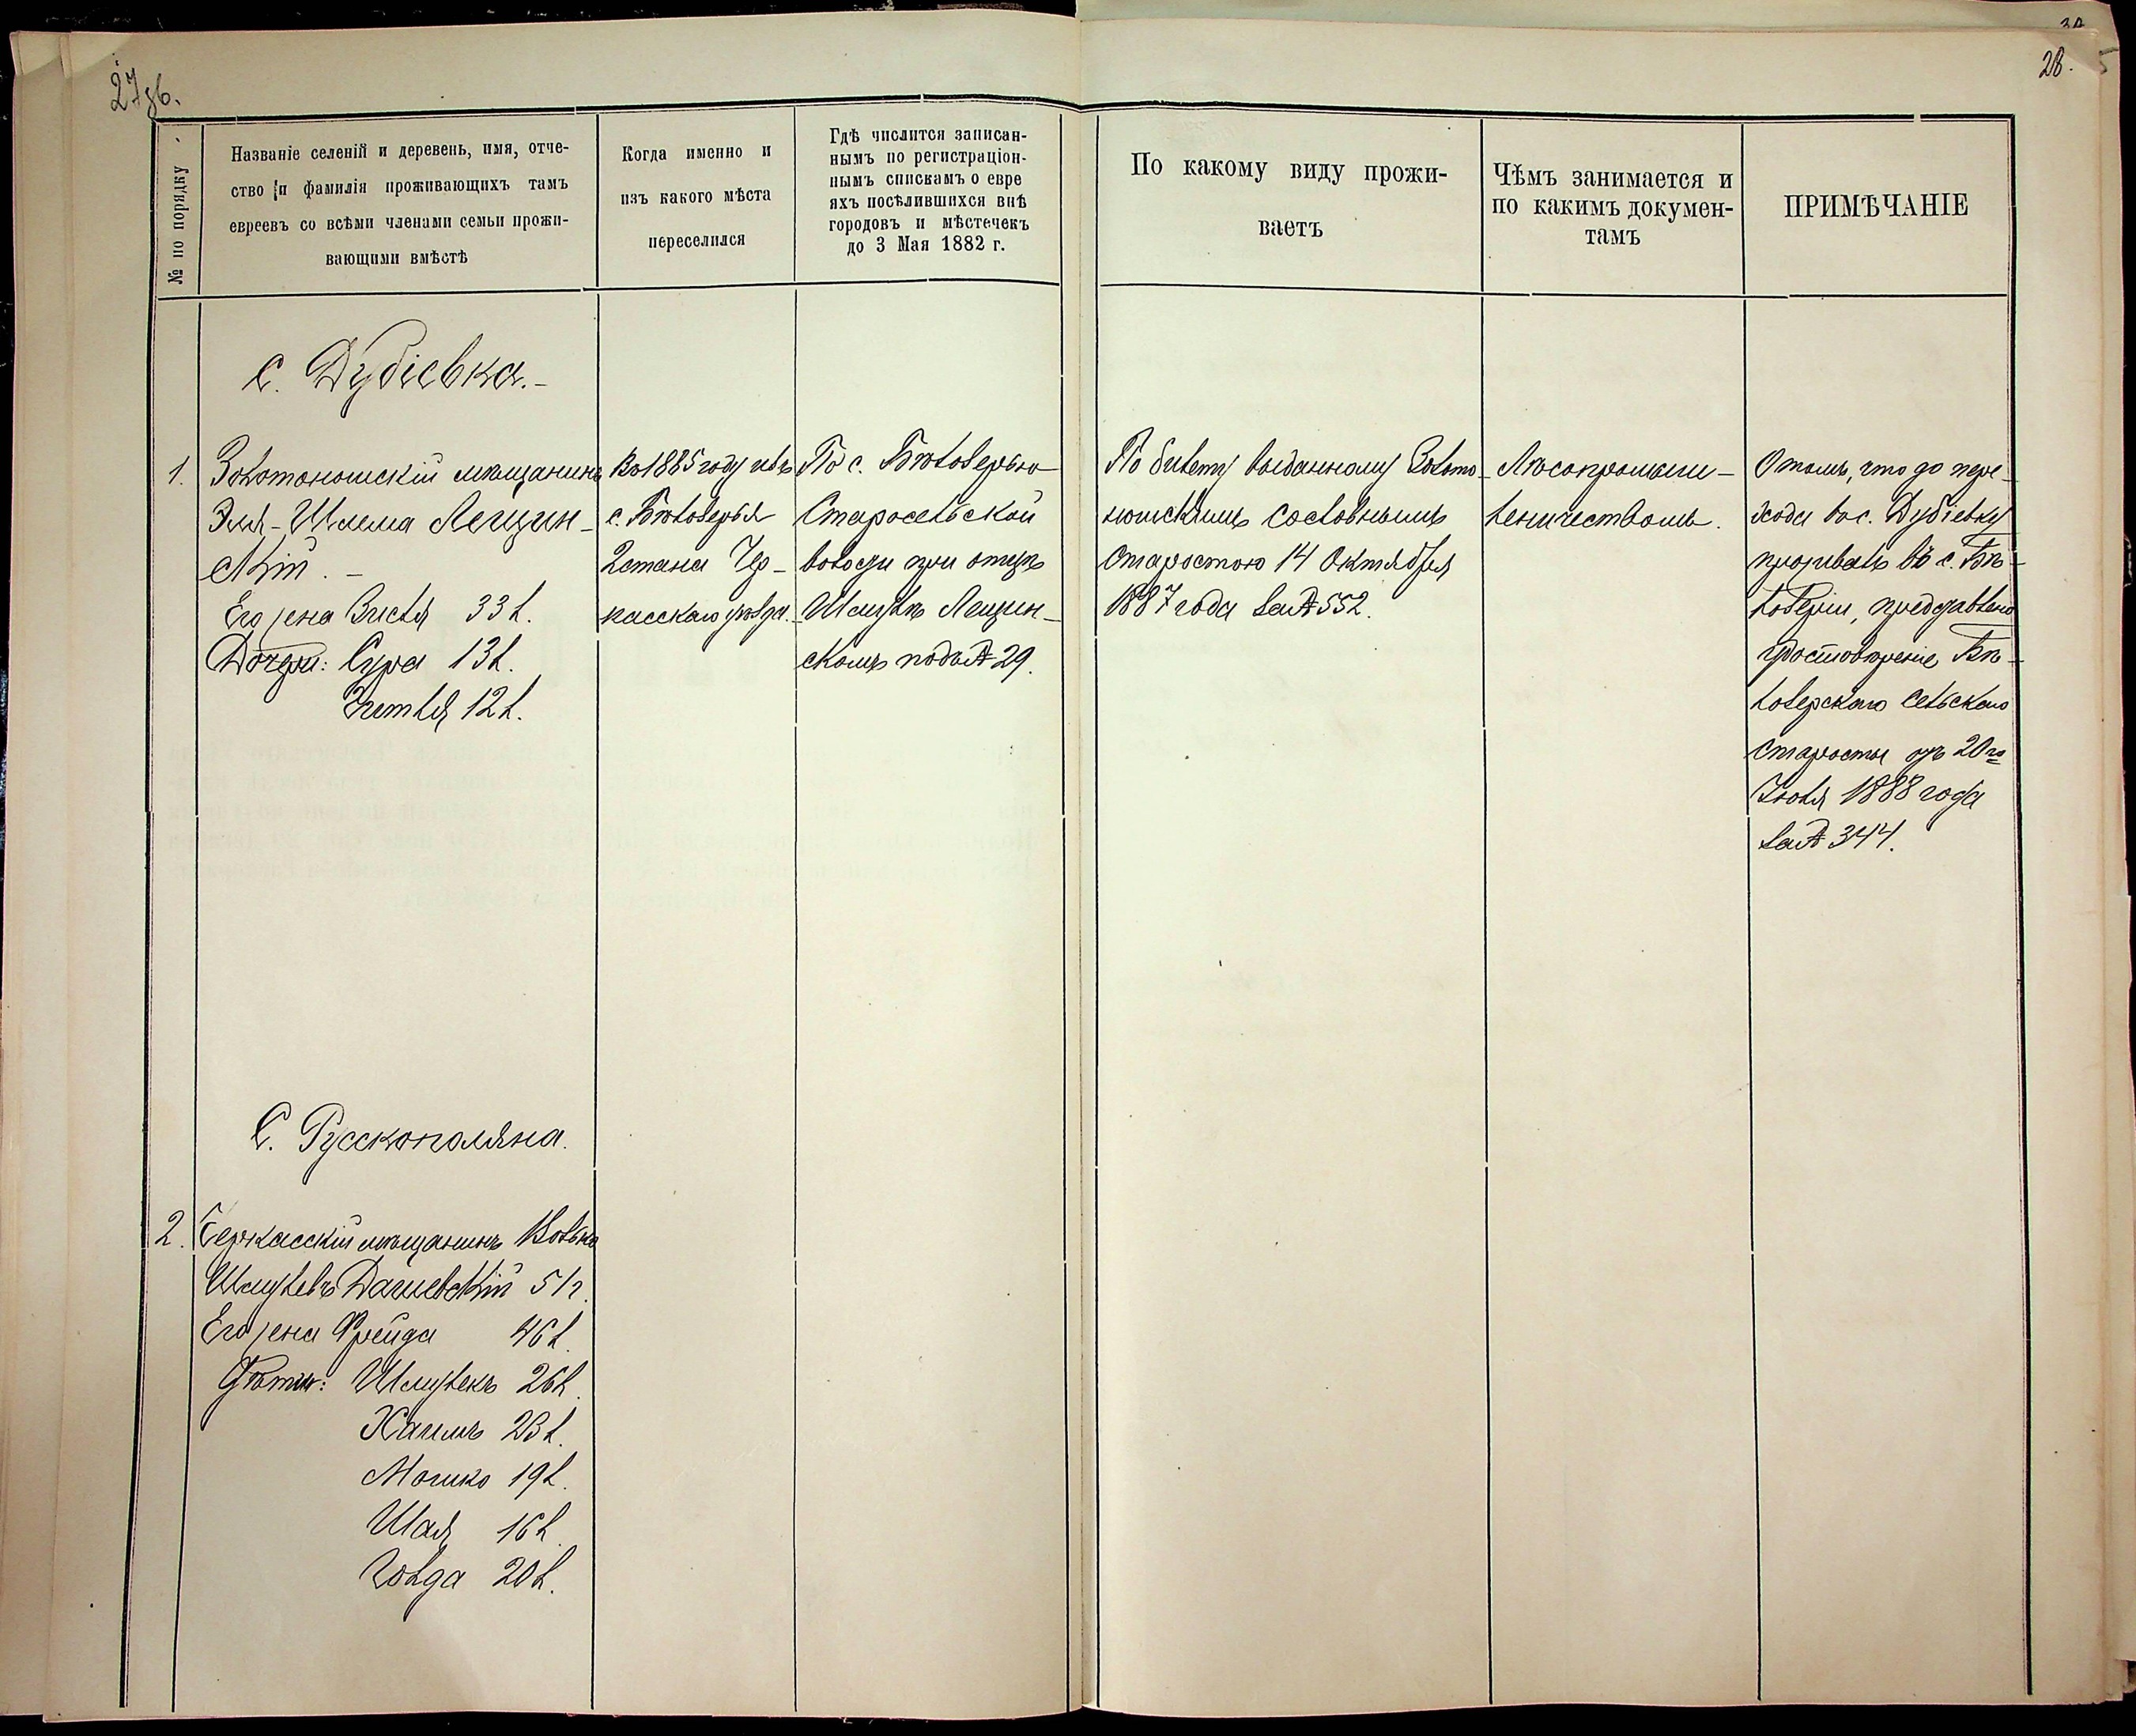 27 зв.
28.
№ по порядку
Названіе селеній и деревень, имя, отче-
ство и фамилія проживающихъ тамъ
евреевъ со всѣми членами семьи прожи-
вающими вмѣстѣ
Когда именно и
изъ какого мѣста
переселился
Гдѣ числится записан-
нымъ по регистраціон-
нымъ спискамъ о евре
яхъ посѣлившихся внѣ
городовъ и мѣстечекъ
до 3 Мая 1882 г.
По какому виду прожи-
ваетъ
Чѣмъ занимается и
по какимъ докумен-
тамъ
ПРИМѢЧАНІЕ
с. Дубіевка.-
1.
Золотоношскій мѣщанинъ
Эля-Шлема Лещин-
скій. -
Его жена Зисля 33 л.
Дочери: Сура 13 л.
Этля 12 л.
Въ 1885 году изъ
с. Бѣлозерья
2 стана Чер-
касскаго уѣзда.
По с. Бѣлозерью
Старосельской
волости при отцѣ
Шмулѣ Лещин-
скомъ подъ № 29.
По билету выданному Золото-
ношскимъ сословнымъ
Старостою 14 Октября
1887 года за № 552.
Лѣсопромыш-
ленничествомъ.
О томъ, что до пере-
хода въ с. Дубіевку
проживалъ въ с. Бѣ-
лозеріи, представлено
удостовѣреніе Бѣ-
лозерскаго Сельскаго
Старосты отъ 20го
Іюля 1888 года
за № 344.
С. Русскополяна.
2.
Черкасскій мѣщанинъ Волько
Шмулевъ Дашевскій 51 г.
Его жена Фрейда 46 л.
Дѣти: Шмулекъ 26 л.
Хаимъ 23 л.
Мошко 19 л.
Шая 16 л.
Голда 20 л.